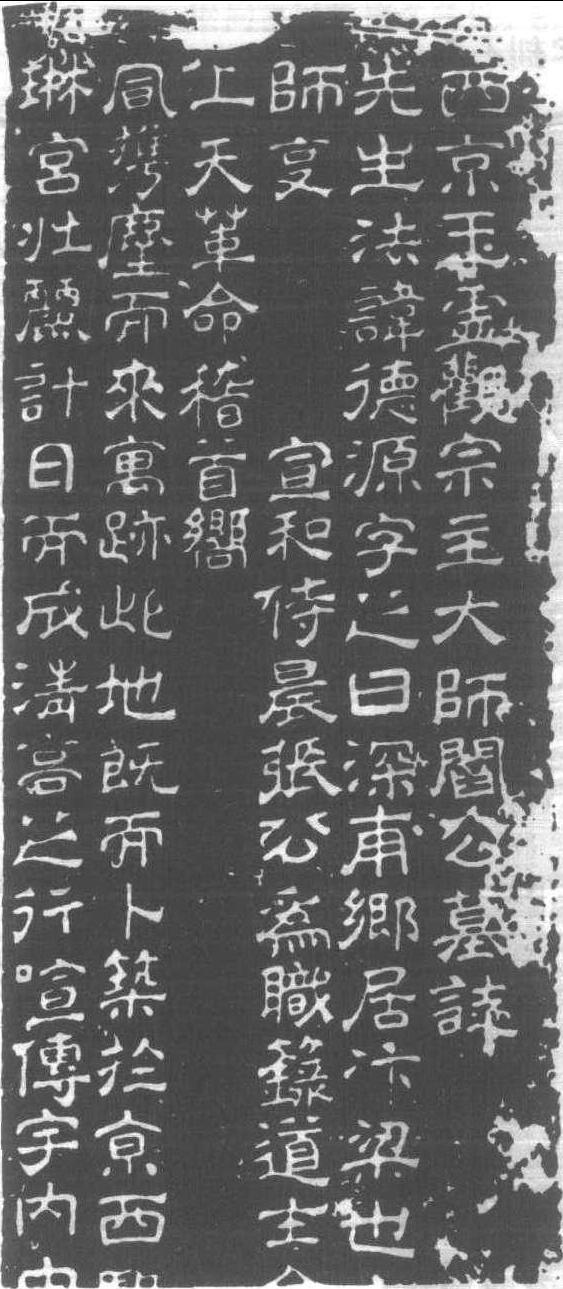 西京玉虛觀宗主大師閻公墓誌
先生法諱德源字之曰深甫鄉居汴梁也
師叓 宣和侍晨張公爲職籙道士
上天革命稽首嚮
風携麈而來寓跡此地既而卜築於京西
琳宮壯麗計日而成清高之行喧傳宇內